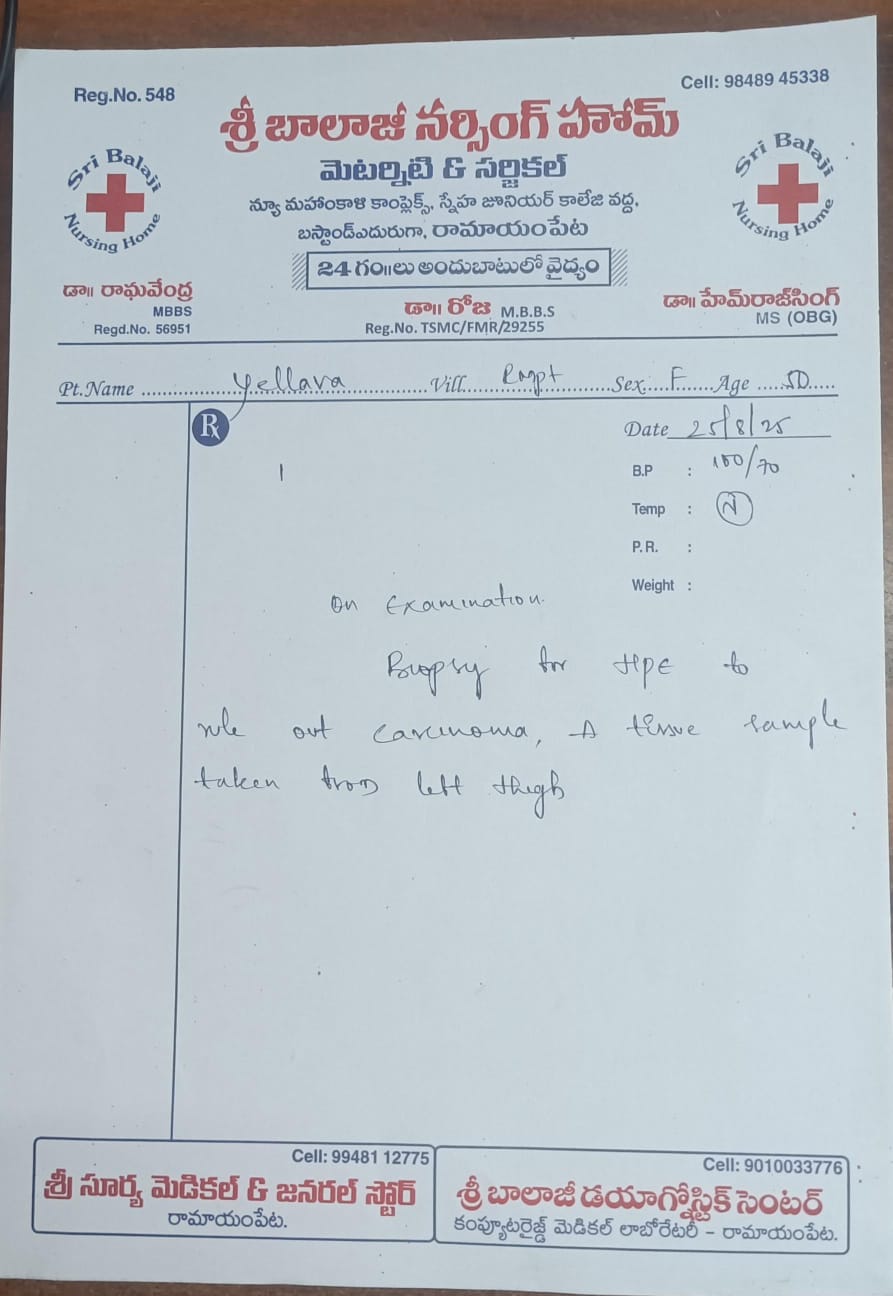 Reg.No. 548
Cell: 98489 45338
శ్రీ బాలాజీ నర్సింగ్ హోమ్
Sri Balaji Nursing Home
మెటర్నిటి & సర్జికల్
Sri Balaji Nursing Home
న్యూ మహాంకాళి కాంప్లెక్స్, స్నేహ జూనియర్ కాలేజి వద్ద,
బస్టాండ్ఎదురుగా, రామాయంపేట
24 గం॥లు అందుబాటులో వైద్యం
డా॥ రాఘవేంద్ర
MBBS
Regd.No. 56951
డా॥ రోజ M.B.B.S
Reg.No. TSMC/FMR/29255
డా॥ హేమ్‌రాజ్‌సింగ్
MS (OBG)
Pt.Name Yellava Vill. Rmpt Sex. F Age 50
Rx
Date 25/8/25
B.P : 100/70
Temp : N
P.R. :
Weight :
On Examination.
Biopsy for HPE to
rule out carcinoma, A tissue sample
taken from left thigh
Cell: 99481 12775
శ్రీ సూర్య మెడికల్ & జనరల్ స్టోర్
రామాయంపేట.
Cell: 9010033776
శ్రీ బాలాజీ డయాగ్నోస్టిక్ సెంటర్
కంప్యూటరైజ్డ్ మెడికల్ లాబోరేటరీ - రామాయంపేట.